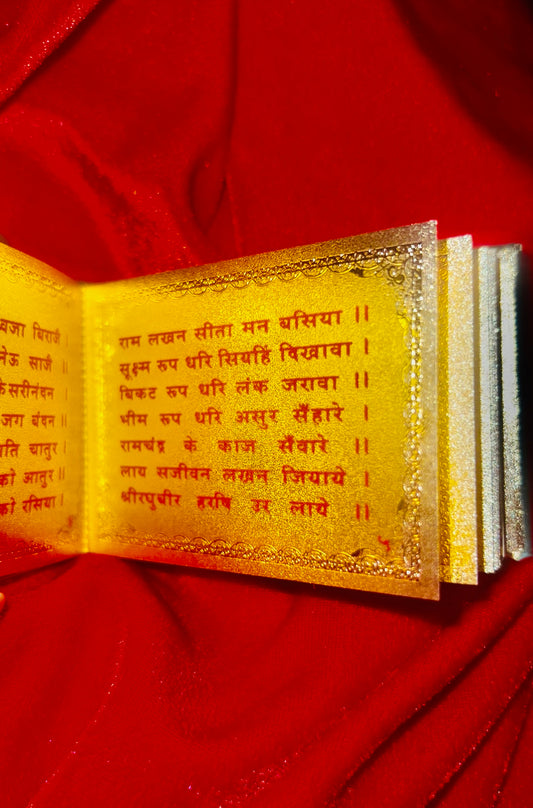 वजा बिराजै ।
नेऊ साजै ॥
केसरीनंदन ।
जग बंदन ॥
ति चातुर ।
को आतुर ॥
को रसिया ।
राम लखन सीता मन बसिया ॥
सूक्ष्म रूप धरि सियहिं दिखावा ।
बिकट रूप धरि लंक जरावा ॥
भीम रूप धरि असुर सँहारे ।
रामचंद्र के काज सँवारे ॥
लाय सजीवन लखन जियाये ।
श्रीरघुबीर हरषि उर लाये ॥
५